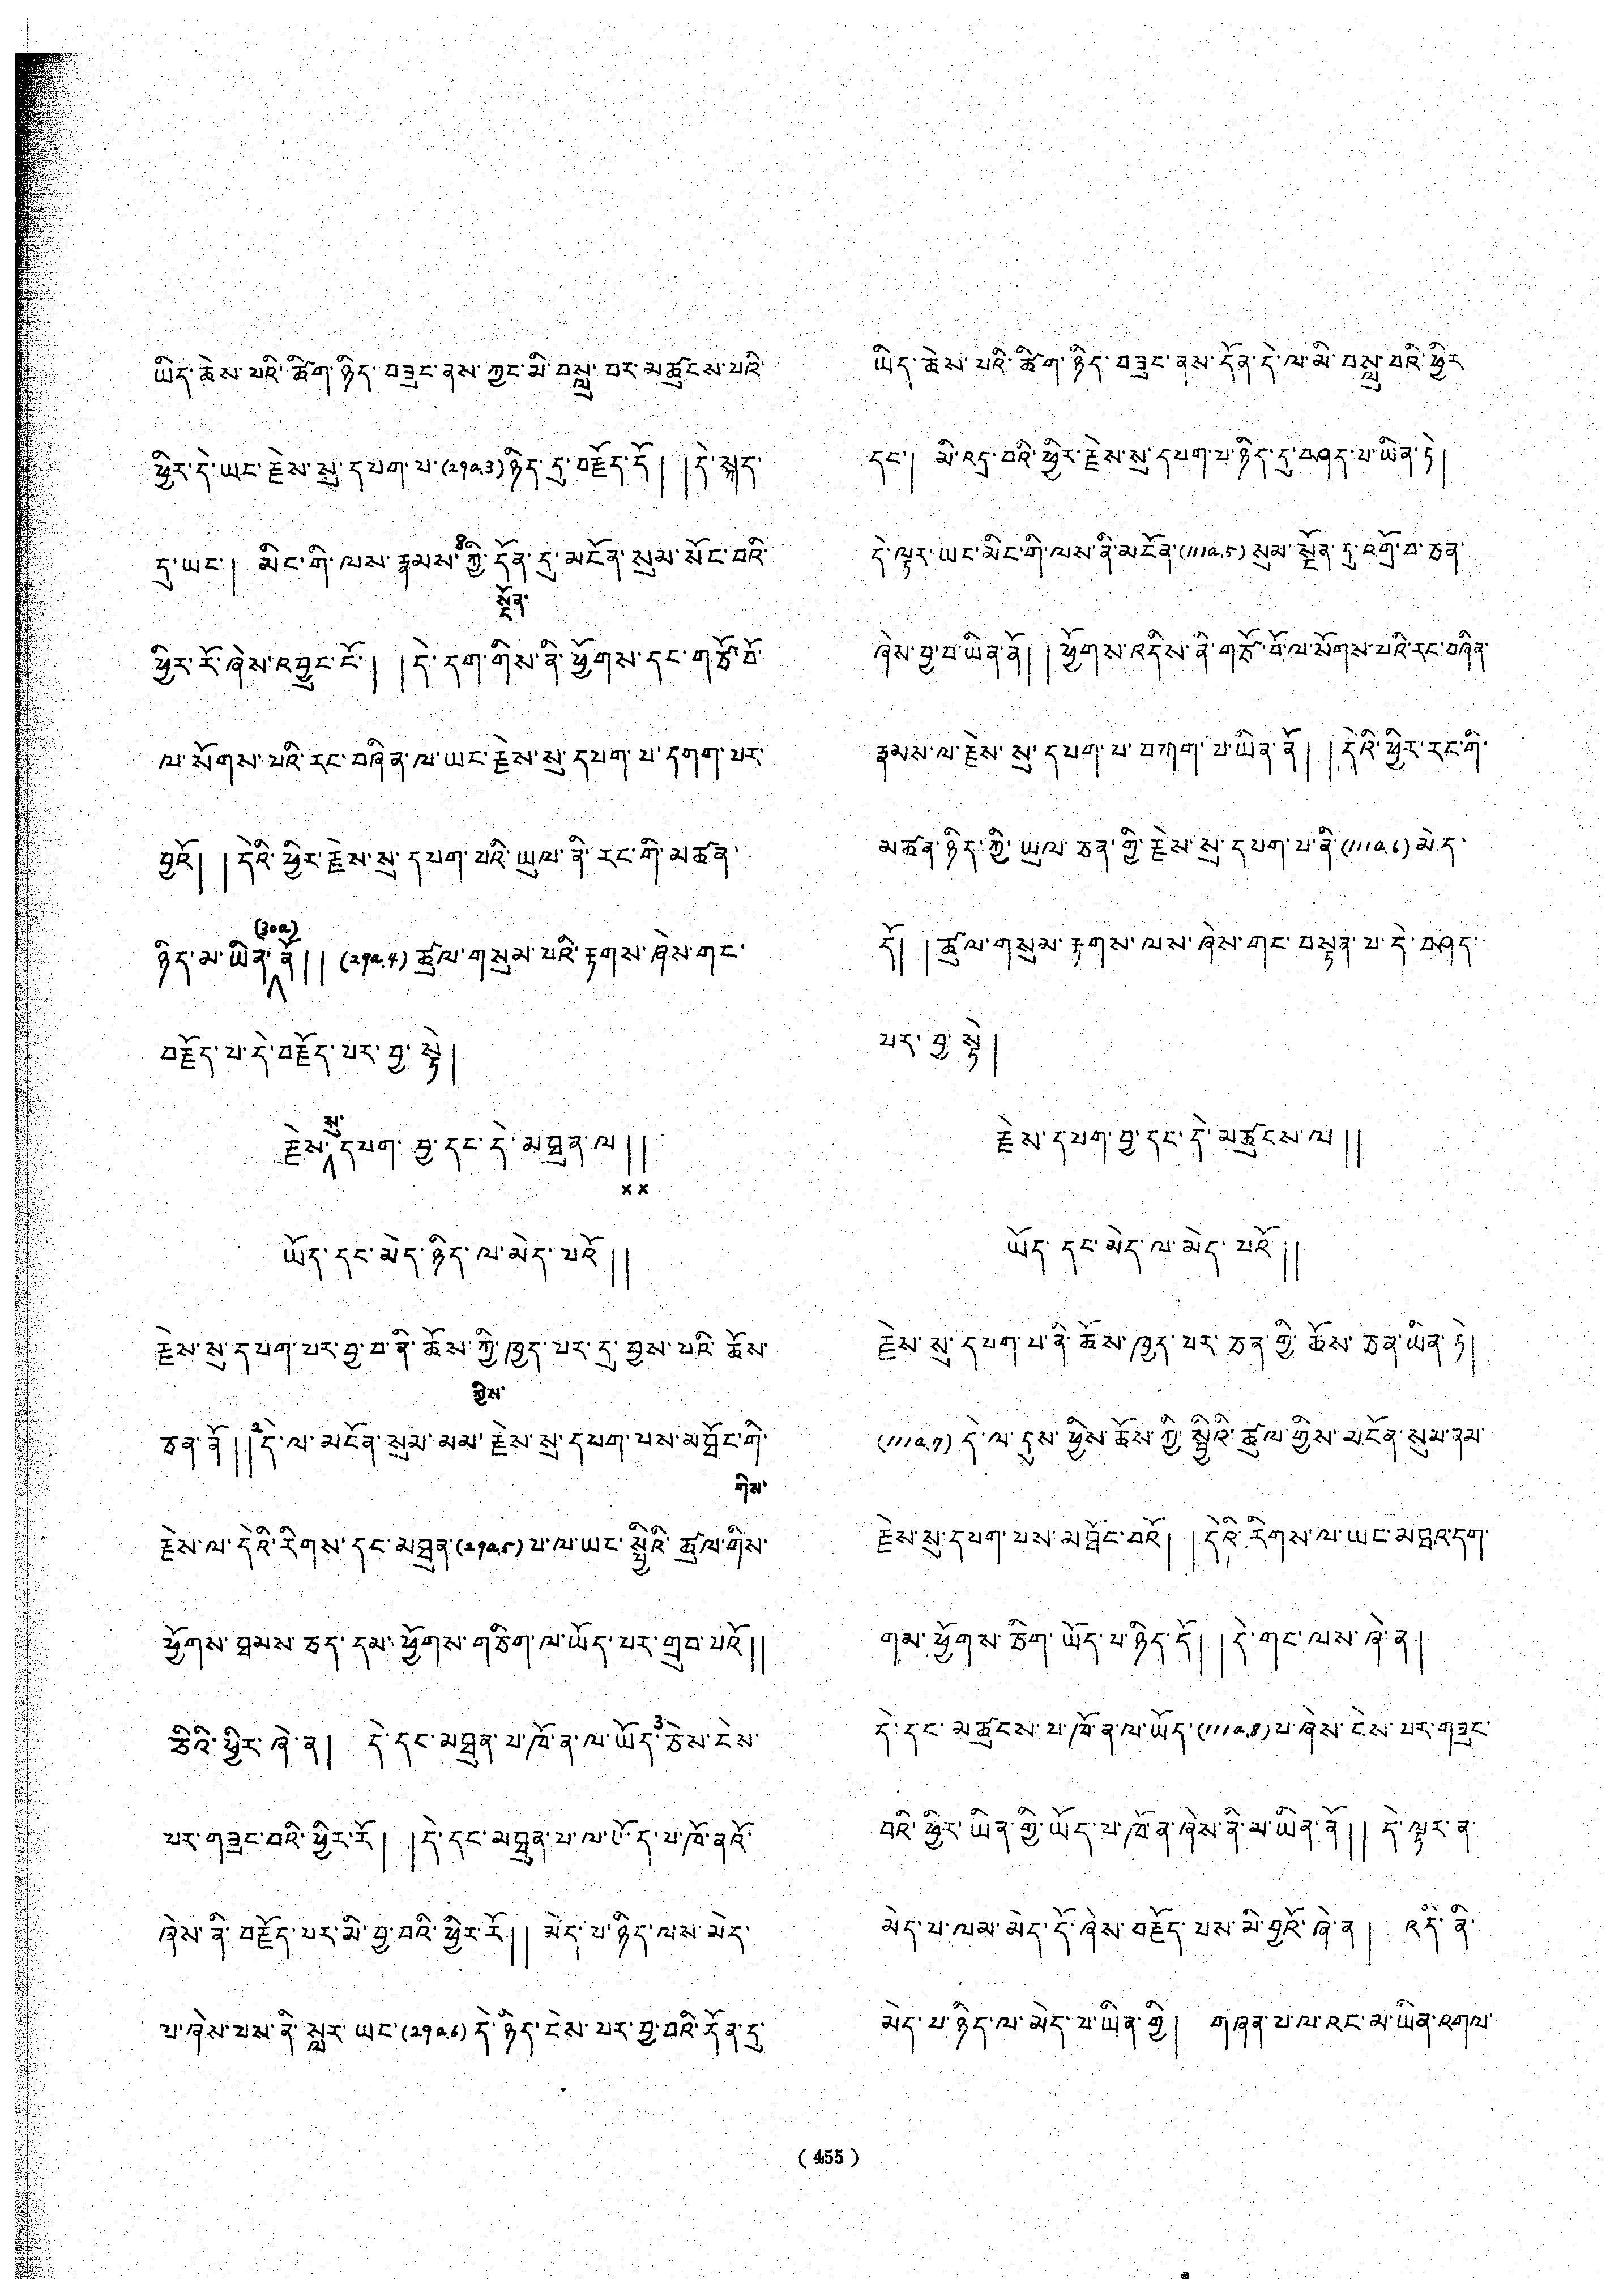 ཡིད་ཆེས་པའི་ཚིག་ཉིད་བཟུང་ནས་ཀྱང་མི་བསླུ་བར་མཚུངས་པའི་
ཕྱིར་དེ་ཡང་རྗེས་སུ་དཔག་པ་(29a.3)ཉིད་དུ་བརྗོད་དོ། །དེ་སྐད་
དུ་ཡང་། མིང་གི་ལས་རྣམས་ཀྱི་དོན་དུ་མངོན་སུམ་སོང་བའི་
སྔོན་
ཕྱིར་རོ་ཞེས་འབྱུང་ངོ་། །དེ་དག་གིས་ནི་ཕྱོགས་དང་གཙོ་བོ་
ལ་སོགས་པའི་རང་བཞིན་ལ་ཡང་རྗེས་སུ་དཔག་པ་དགག་པར་
བྱའོ། །དེའི་ཕྱིར་རྗེས་སུ་དཔག་པའི་ཡུལ་ནི་རང་གི་མཚན་
(30a)
ཉིད་མ་ཡིན་ནོ།། (29a.4) ཚུལ་གསུམ་པའི་རྟགས་ཞེས་གང་
བརྗོད་པ་དེ་བརྗོད་པར་བྱ་སྟེ།
སུ་
རྗེས་དཔག་བྱ་དང་དེ་མཐུན་ལ།།
x x
ཡོད་དང་མེད་ཉིད་ལ་མེད་པའོ།།
རྗེས་སུ་དཔག་པར་བྱ་བ་ནི་ཆོས་ཀྱི་ཁྱད་པར་དུ་བྱས་པའི་ཆོས་
ཅན་ནོ།།2དེ་ལ་མངོན་སུམ་མམ་རྗེས་སུ་དཔག་པས་མཐོང་གི་
རྗེས་ལ་དེའི་རིགས་དང་མཐུན་(29a.5)པ་ལ་ཡང་སྤྱིའི་ཚུལ་གིས་
གིས་
ཕྱོགས་ཐམས་ཅད་དམ་ཕྱོགས་གཅིག་ལ་ཡོད་པར་གྲུབ་པའོ།།
ཅིའི་ཕྱིར་ཞེ་ན། དེ་དང་མཐུན་པ་ཁོ་ན་ལ་ཡོད་3ཅེས་ངེས་
པར་གཟུང་བའི་ཕྱིར་རོ། །དེ་དང་མཐུན་པ་ལ་ཡོད་པ་ཁོ་ནའོ་
ཞེས་ནི་བརྗོད་པར་མི་བྱ་བའི་ཕྱིར་རོ།། མེད་པ་ཉིད་ལས་མེད་
པ་ཞེས་པས་ནི་སླར་ཡང་(29a.6)དེ་ཉིད་ངེས་པར་བྱ་བའི་དོན་དུ་
ཡིད་ཆེས་པའི་ཚིག་ཉིད་བཟུང་ནས་དོན་དེ་ལ་མི་བསླུ་བའི་ཕྱིར
དང་། མི་འདྲ་བའི་ཕྱིར་རྗེས་སུ་དཔག་པ་ཉིད་དུ་བཤད་པ་ཡིན་ཏེ།
དེ་ལྟར་ཡང་མིང་གི་ལས་ནི་མངོན་(111a.5)སུམ་སྔོན་དུ་འགྲོ་བ་ཅན་
ཞེས་བྱ་བ་ཡིན་ནོ།།ཕྱོགས་འདིས་ནི་གཙོ་བོ་ལ་སོགས་པའི་རང་བཞིན་
རྣམས་ལ་རྗེས་སུ་དཔག་པ་བཀག་པ་ཡིན་ནོ། །དེའི་ཕྱིར་རང་གི་
མཚན་ཉིད་ཀྱི་ཡུལ་ཅན་གྱི་རྗེས་སུ་དཔག་པ་ནི་(111a.6)མེད་
དོ། །ཚུལ་གསུམ་རྟགས་ལས་ཞེས་གང་བསྟན་པ་དེ་བཤད་
པར་བྱ་སྟེ།
རྗེས་དཔག་བྱ་དང་དེ་མཚུངས་ལ།།
ཡོད་དང་མེད་ལ་མེད་པའོ།།
རྗེས་སུ་དཔག་པ་ནི་ཆོས་ཁྱད་པར་ཅན་གྱི་ཆོས་ཅན་ཡིན་ཏེ།
(111a.7)དེ་ལ་དུས་ཕྱིས་ཆོས་ཀྱི་སྤྱིའི་ཚུལ་གྱིས་མངོན་སུམ་ནམ་
རྗེས་སུ་དཔག་པས་མཐོང་བའོ། །དེའི་རིགས་ལ་ཡང་མཐའ་དག་
གམ་ཕྱོགས་ཅིག་ཡོད་པ་ཉིད་དོ། །དེ་གང་ལས་ཞེ་ན།
དེ་དང་མཚུངས་པ་ཁོ་ན་ལ་ཡོད་(111a.8)པ་ཞེས་ངེས་པར་གཟུང་
བའི་ཕྱིར་ཡིན་གྱི་ཡོད་པ་ཁོ་ན་ཞེས་ནི་མ་ཡིན་ནོ།། དེ་ལྟར་ན་
མེད་པ་ལམ་མེད་དོ་ཞེས་བརྗོད་པས་མི་བྱའོ་ཞེ་ན། འདི་ནི་
མེད་པ་ཉིད་ལ་མེད་པ་ཡིན་གྱི། གཞན་པ་ལ་འང་མ་ཡིན་འགལ་
(455)